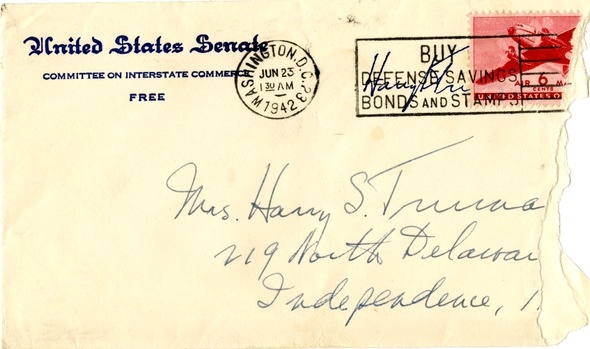 United States Senate
COMMITTEE ON INTERSTATE COMMERC
FREE
WASHINGTON, D.C. 23
JUN 23
1 30 AM
1942
BUY
DEFENSE SAVINGS
BONDS AND STAMPS
Harry
AIR 6 MA
CENTS
UNITED STATES O
Mrs. Harry S. Truma
219 North Delawar
Independence,